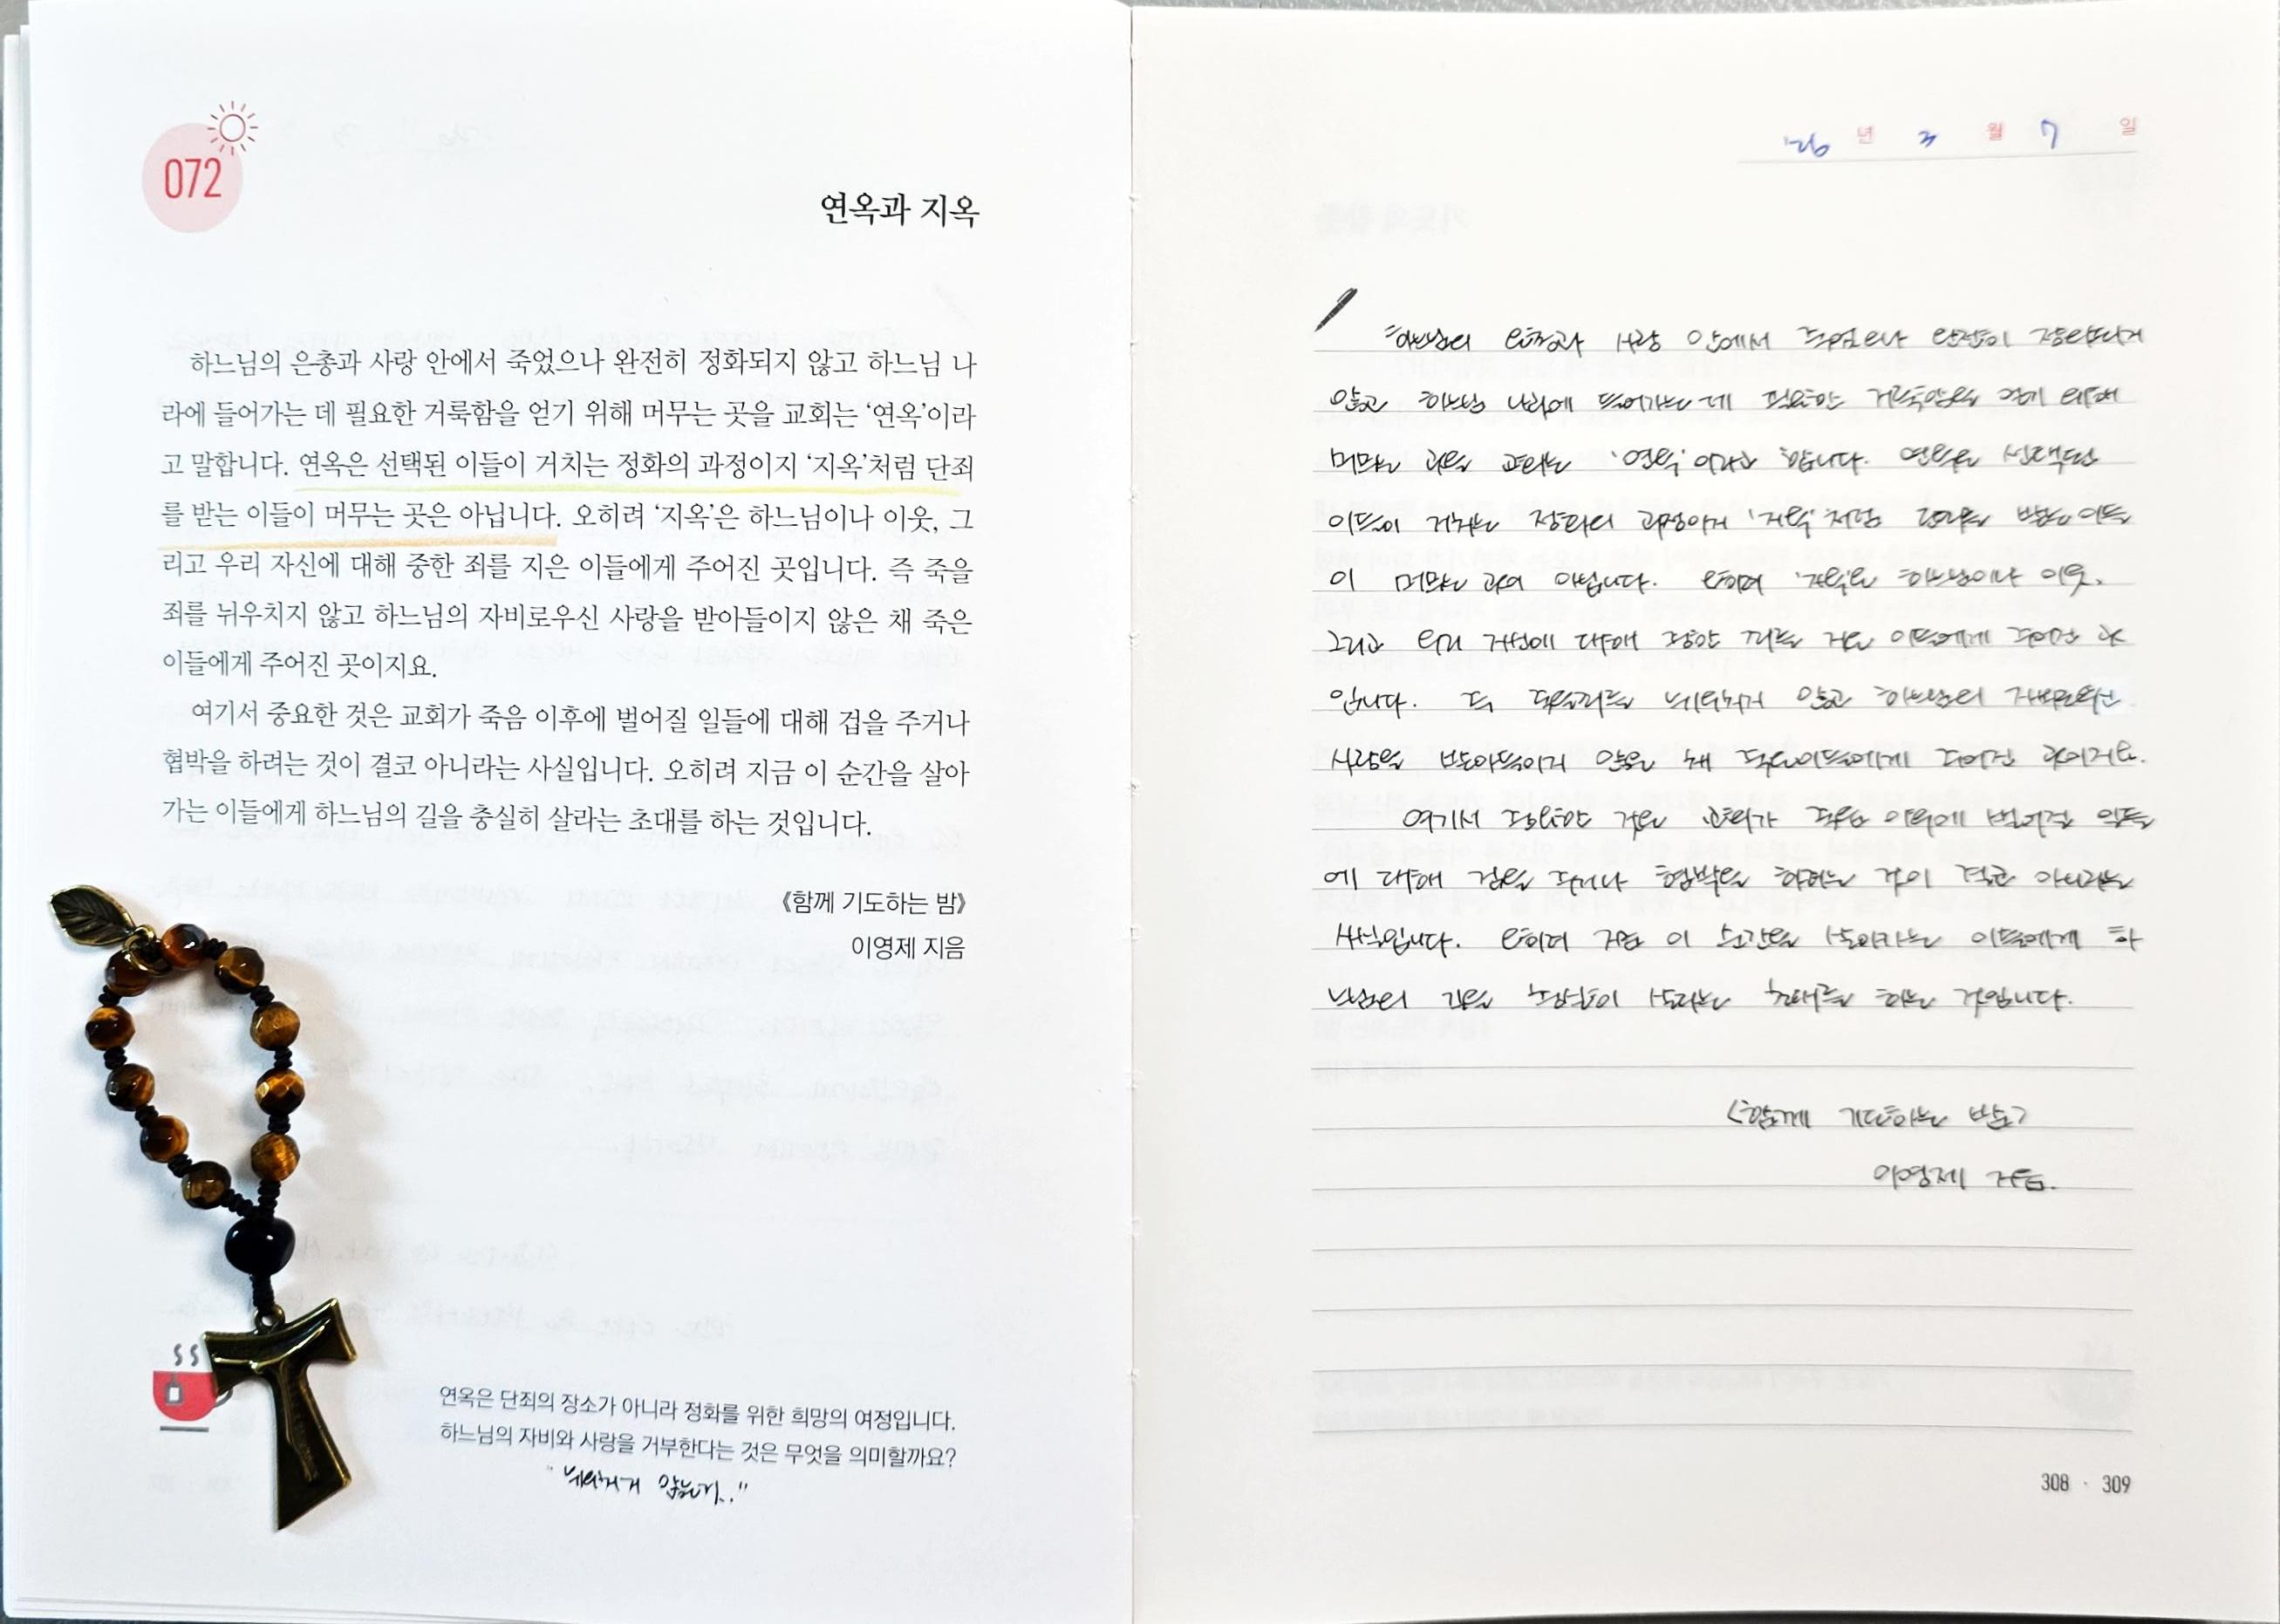 072
연옥과 지옥
하느님의 은총과 사랑 안에서 죽었으나 완전히 정화되지 않고 하느님 나
라에 들어가는 데 필요한 거룩함을 얻기 위해 머무는 곳을 교회는 ‘연옥’이라
고 말합니다. 연옥은 선택된 이들이 거치는 정화의 과정이지 ‘지옥’처럼 단죄
를 받는 이들이 머무는 곳은 아닙니다. 오히려 ‘지옥’은 하느님이나 이웃, 그
리고 우리 자신에 대해 중한 죄를 지은 이들에게 주어진 곳입니다. 즉 죽을
죄를 뉘우치지 않고 하느님의 자비로우신 사랑을 받아들이지 않은 채 죽은
이들에게 주어진 곳이지요.
여기서 중요한 것은 교회가 죽음 이후에 벌어질 일들에 대해 겁을 주거나
협박을 하려는 것이 결코 아니라는 사실입니다. 오히려 지금 이 순간을 살아
가는 이들에게 하느님의 길을 충실히 살라는 초대를 하는 것입니다.
《함께 기도하는 밤》
이영제 지음
연옥은 단죄의 장소가 아니라 정화를 위한 희망의 여정입니다.
하느님의 자비와 사랑을 거부한다는 것은 무엇을 의미할까요?
"뉘우치지 않는지.."
'26 년 3 월 7 일
하느님의 은총과 사랑 안에서 죽었으나 완전히 정화되지
않고 하느님 나라에 들어가는 데 필요한 거룩함을 얻기 위해
머무는 곳을 교회는 '연옥'이라고 합니다. 연옥은 선택된
이들이 거치는 정화의 과정이지 '지옥'처럼 단죄를 받는 이들
이 머무는 곳이 아닙니다. 오히려 '지옥'은 하느님이나 이웃,
그리고 우리 자신에 대해 중한 죄를 지은 이들에게 주어진 곳
입니다. 즉 죽을죄를 뉘우치지 않고 하느님의 자비로우신
사랑을 받아들이지 않은 채 죽은이들에게 주어진 곳이지요.
여기서 중요한 것은 교회가 죽음 이후에 벌어질 일들
에 대해 겁을 주거나 협박을 하려는 것이 결코 아니라는
사실입니다. 오히려 지금 이 순간을 살아가는 이들에게 하
느님의 길을 충실히 살라는 초대를 하는 것입니다.
<함께 기도하는 밤>
이영제 지음.
308 · 309